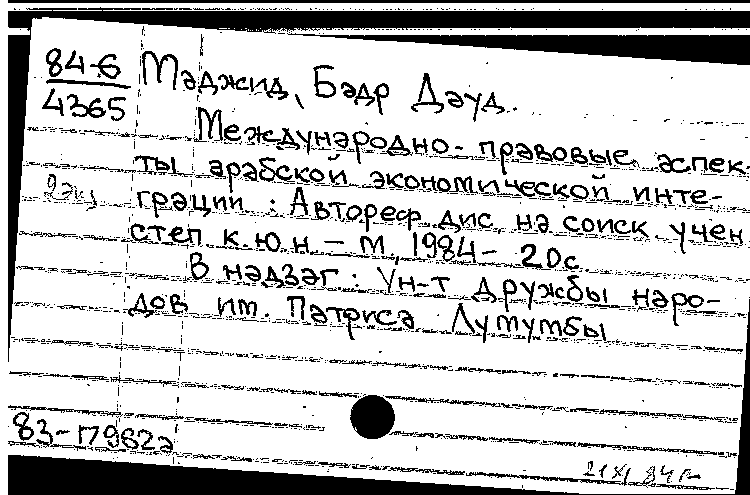 84-6
4365
Маджид, Бадр Дауд.
Международно-правовые аспек-
ты арабской экономической инте-
2 экз
грации : Автореф. дис. на соиск. учен
степ к.ю.н – М, 1984 – 20с
В надзаг: Ун-т дружбы наро-
дов им. Патриса Лумумбы
83-17962а
21 XI 84 г